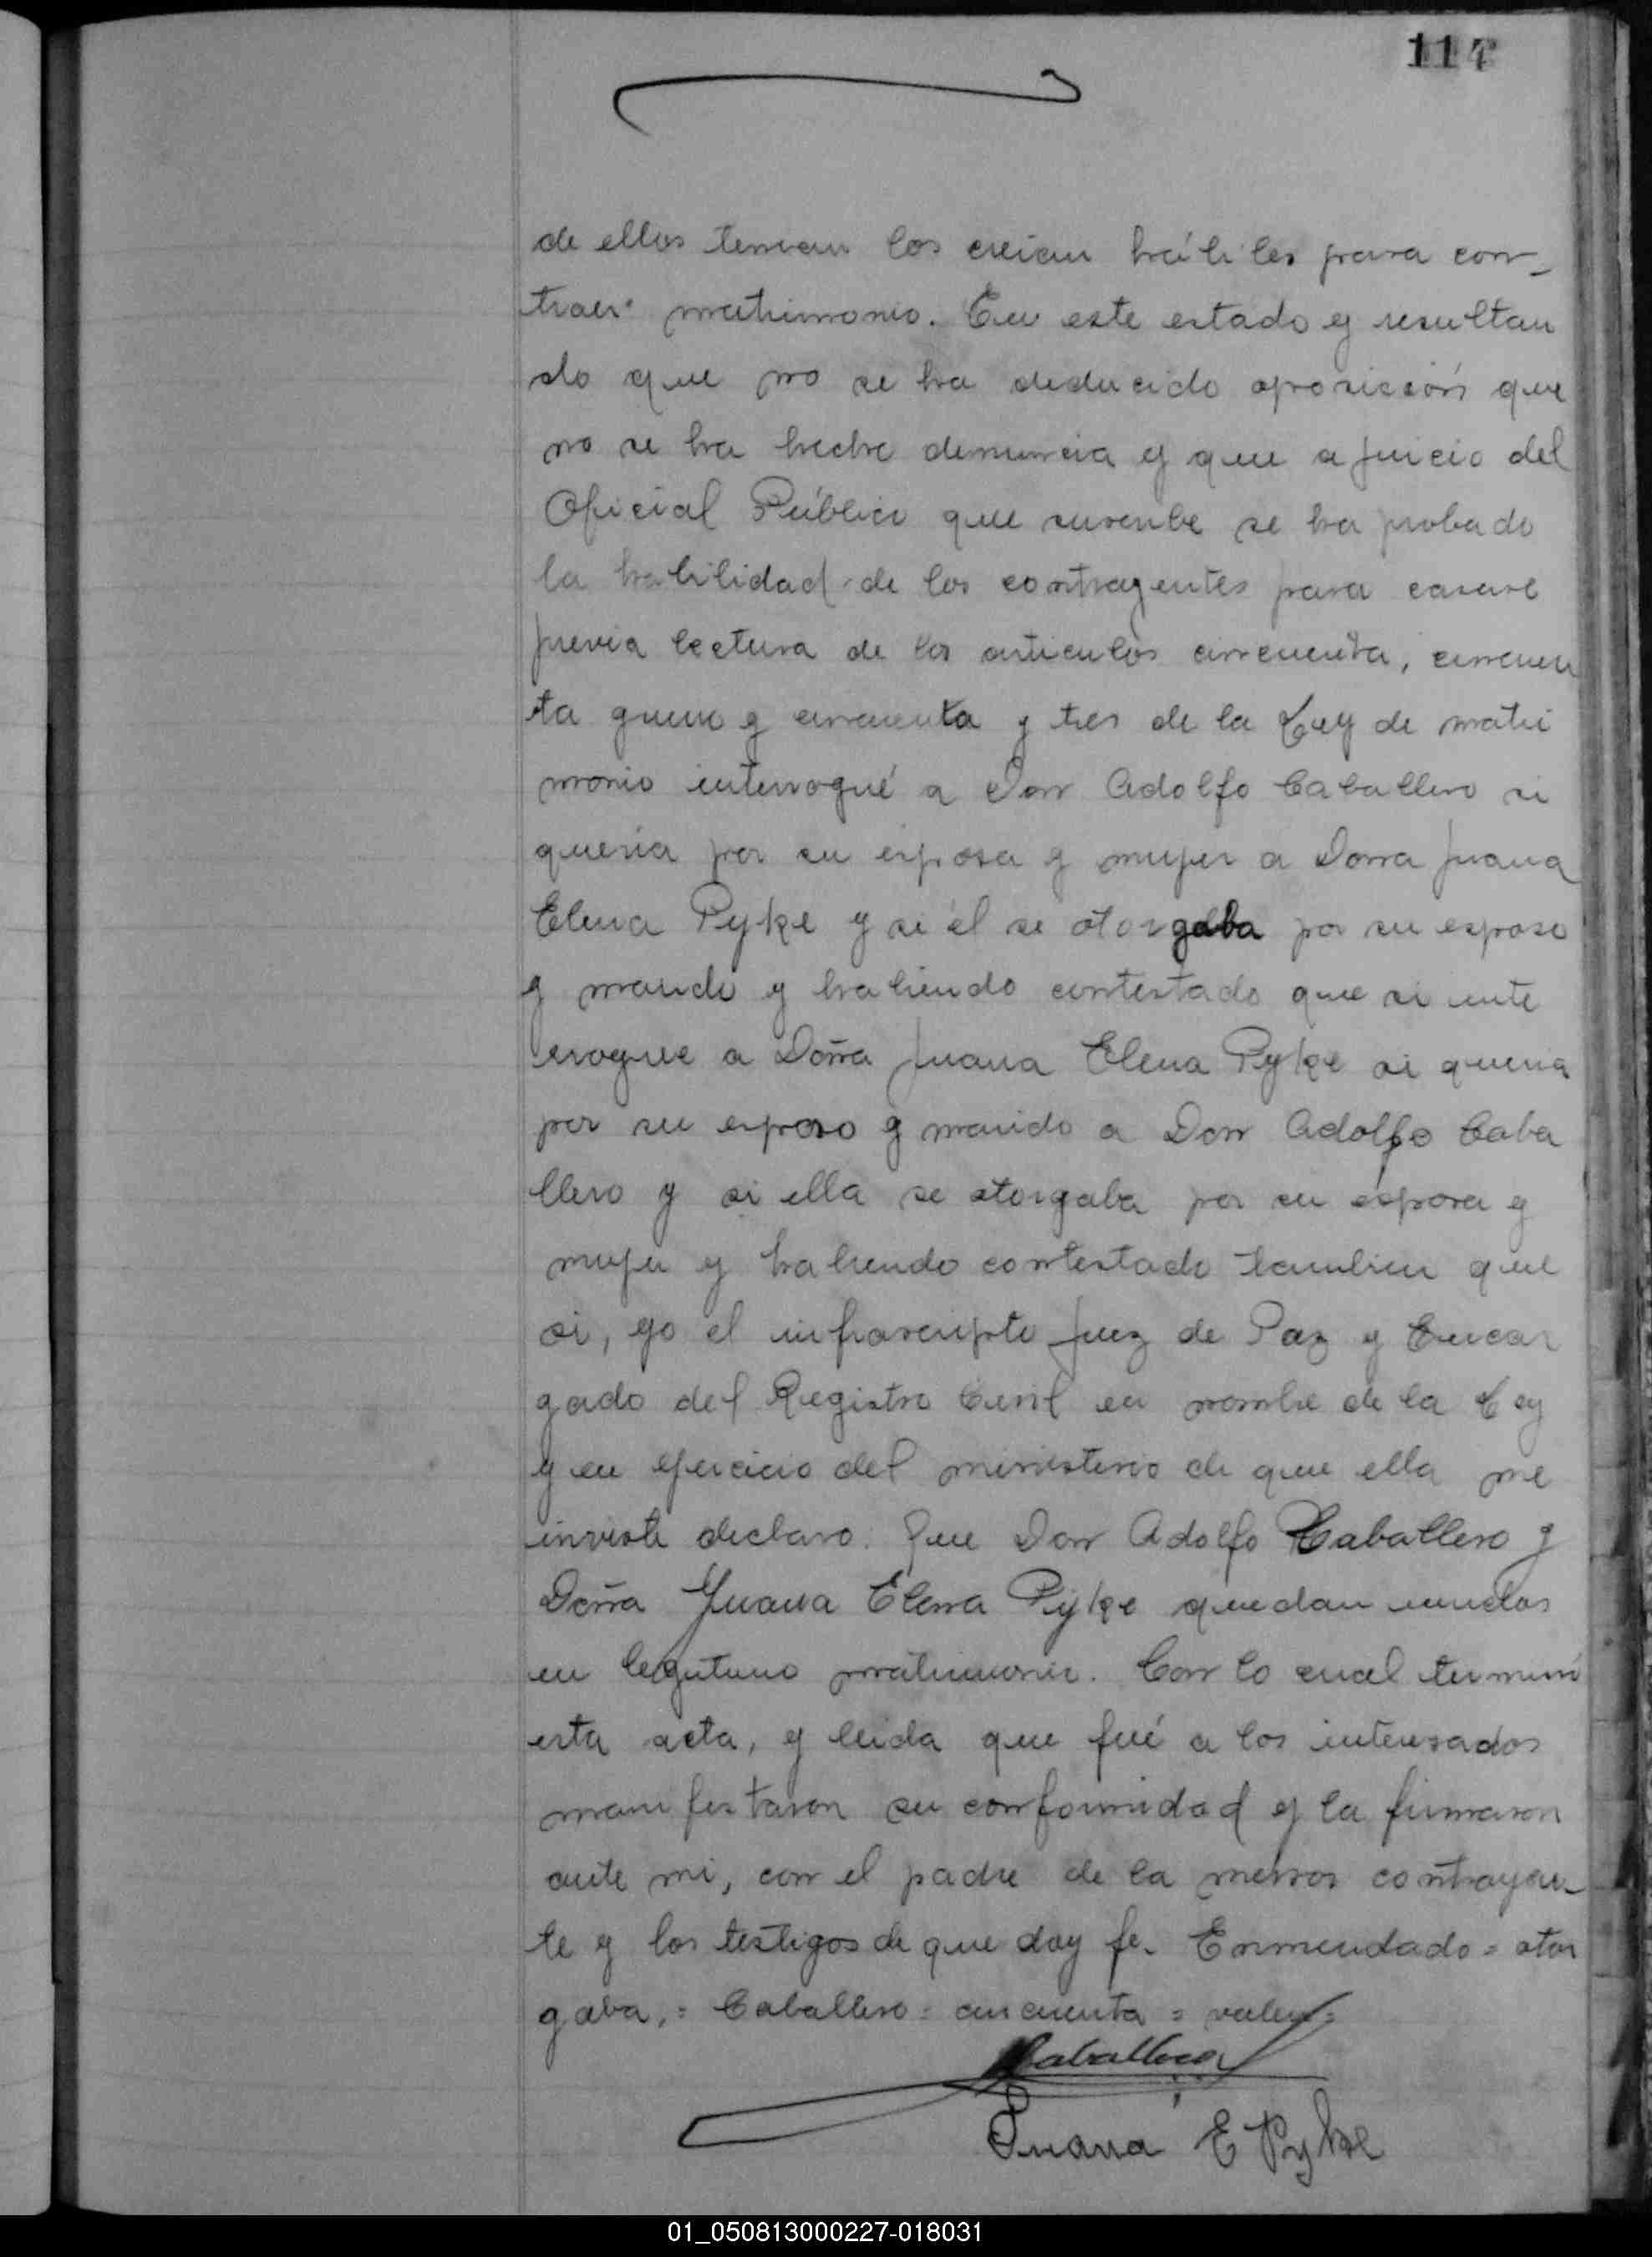 114
de ellos tenian los creian hábiles para con-
traer matrimonio. En este estado y resultan
do que no se ha deducido oposición que
no se ha hecho denuncia y que a juicio del
Oficial Público que suscribe se ha probado
la habilidad de los contrayentes para casarse
previa lectura de los articulos cincuenta, cincuen
ta y uno y cincuenta y tres de la Ley de matri
monio interrogué a Don Adolfo Caballero si
queria por su esposa y mujer a Doña Juana
Elena Pyke y si él se otorgaba por su esposo
y marido y habiendo contestado que si inte
rrogue a Doña Juana Elena Pyke si queria
por su esposo y marido a Don Adolfo Caba
llero y si ella se otorgaba por su esposa y
mujer y habiendo contestado tambien que
si, yo el infrascripto Juez de Paz y Encar
gado del Registro Civil en nombre de la Ley
y en ejercicio del ministerio de que ella me
inviste declaro: Que Don Adolfo Caballero y
Doña Juana Elena Pyke quedan unidos
en legitimo matrimonio. Con lo cual terminó
esta acta, y leida que fué a los interesados
manifestaron su conformidad y la firmaron
ante mi, con el padre de la menor contrayen-
te y los testigos de que doy fe. Enmendado = otor
gaba, = Caballero = cincuenta = valen =
Caballero
Juana E Pyke
01_050813000227-018031